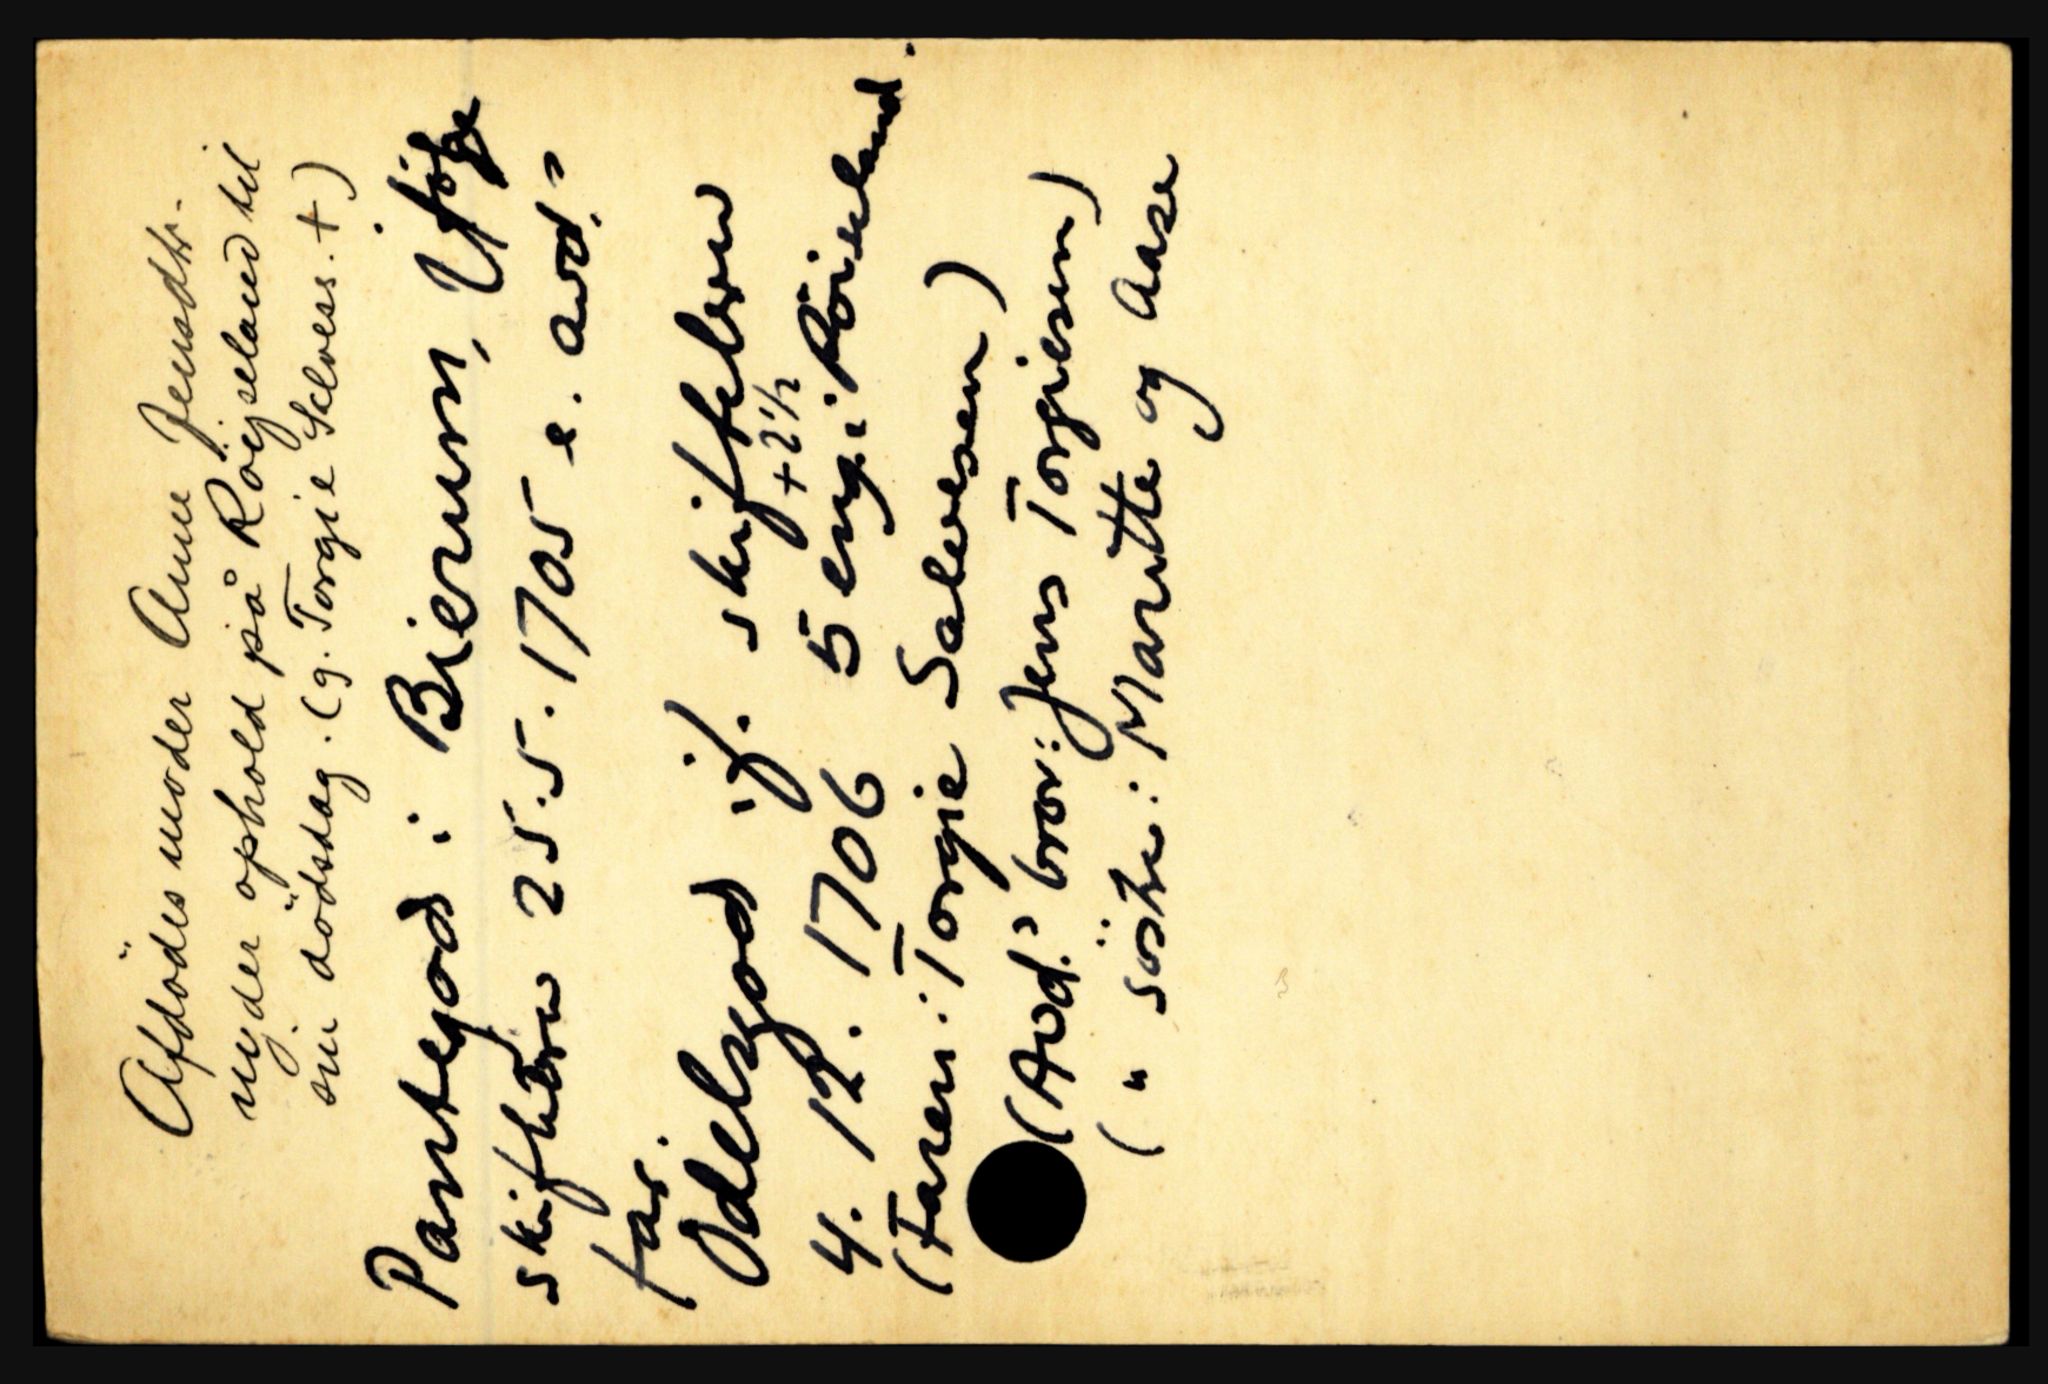 Afdödes moder Anne Jensdtr.
nyder ophold på Röijseland til
sin dödsdag. (g. Torgie Salvess. +)
Pantegods i Bierum, Ifölge
skiftebrev 25.5.1705 e. avd.s
far.
Odelsgods if. skiftebrev
+ 2 1/2
4. 12. 1706 5 eng. i Röiseland.
(Faren: Torgie Salvesen)
(Avd.s bror: Jens Torgiesen)
(" søstre: Maritte og Aase